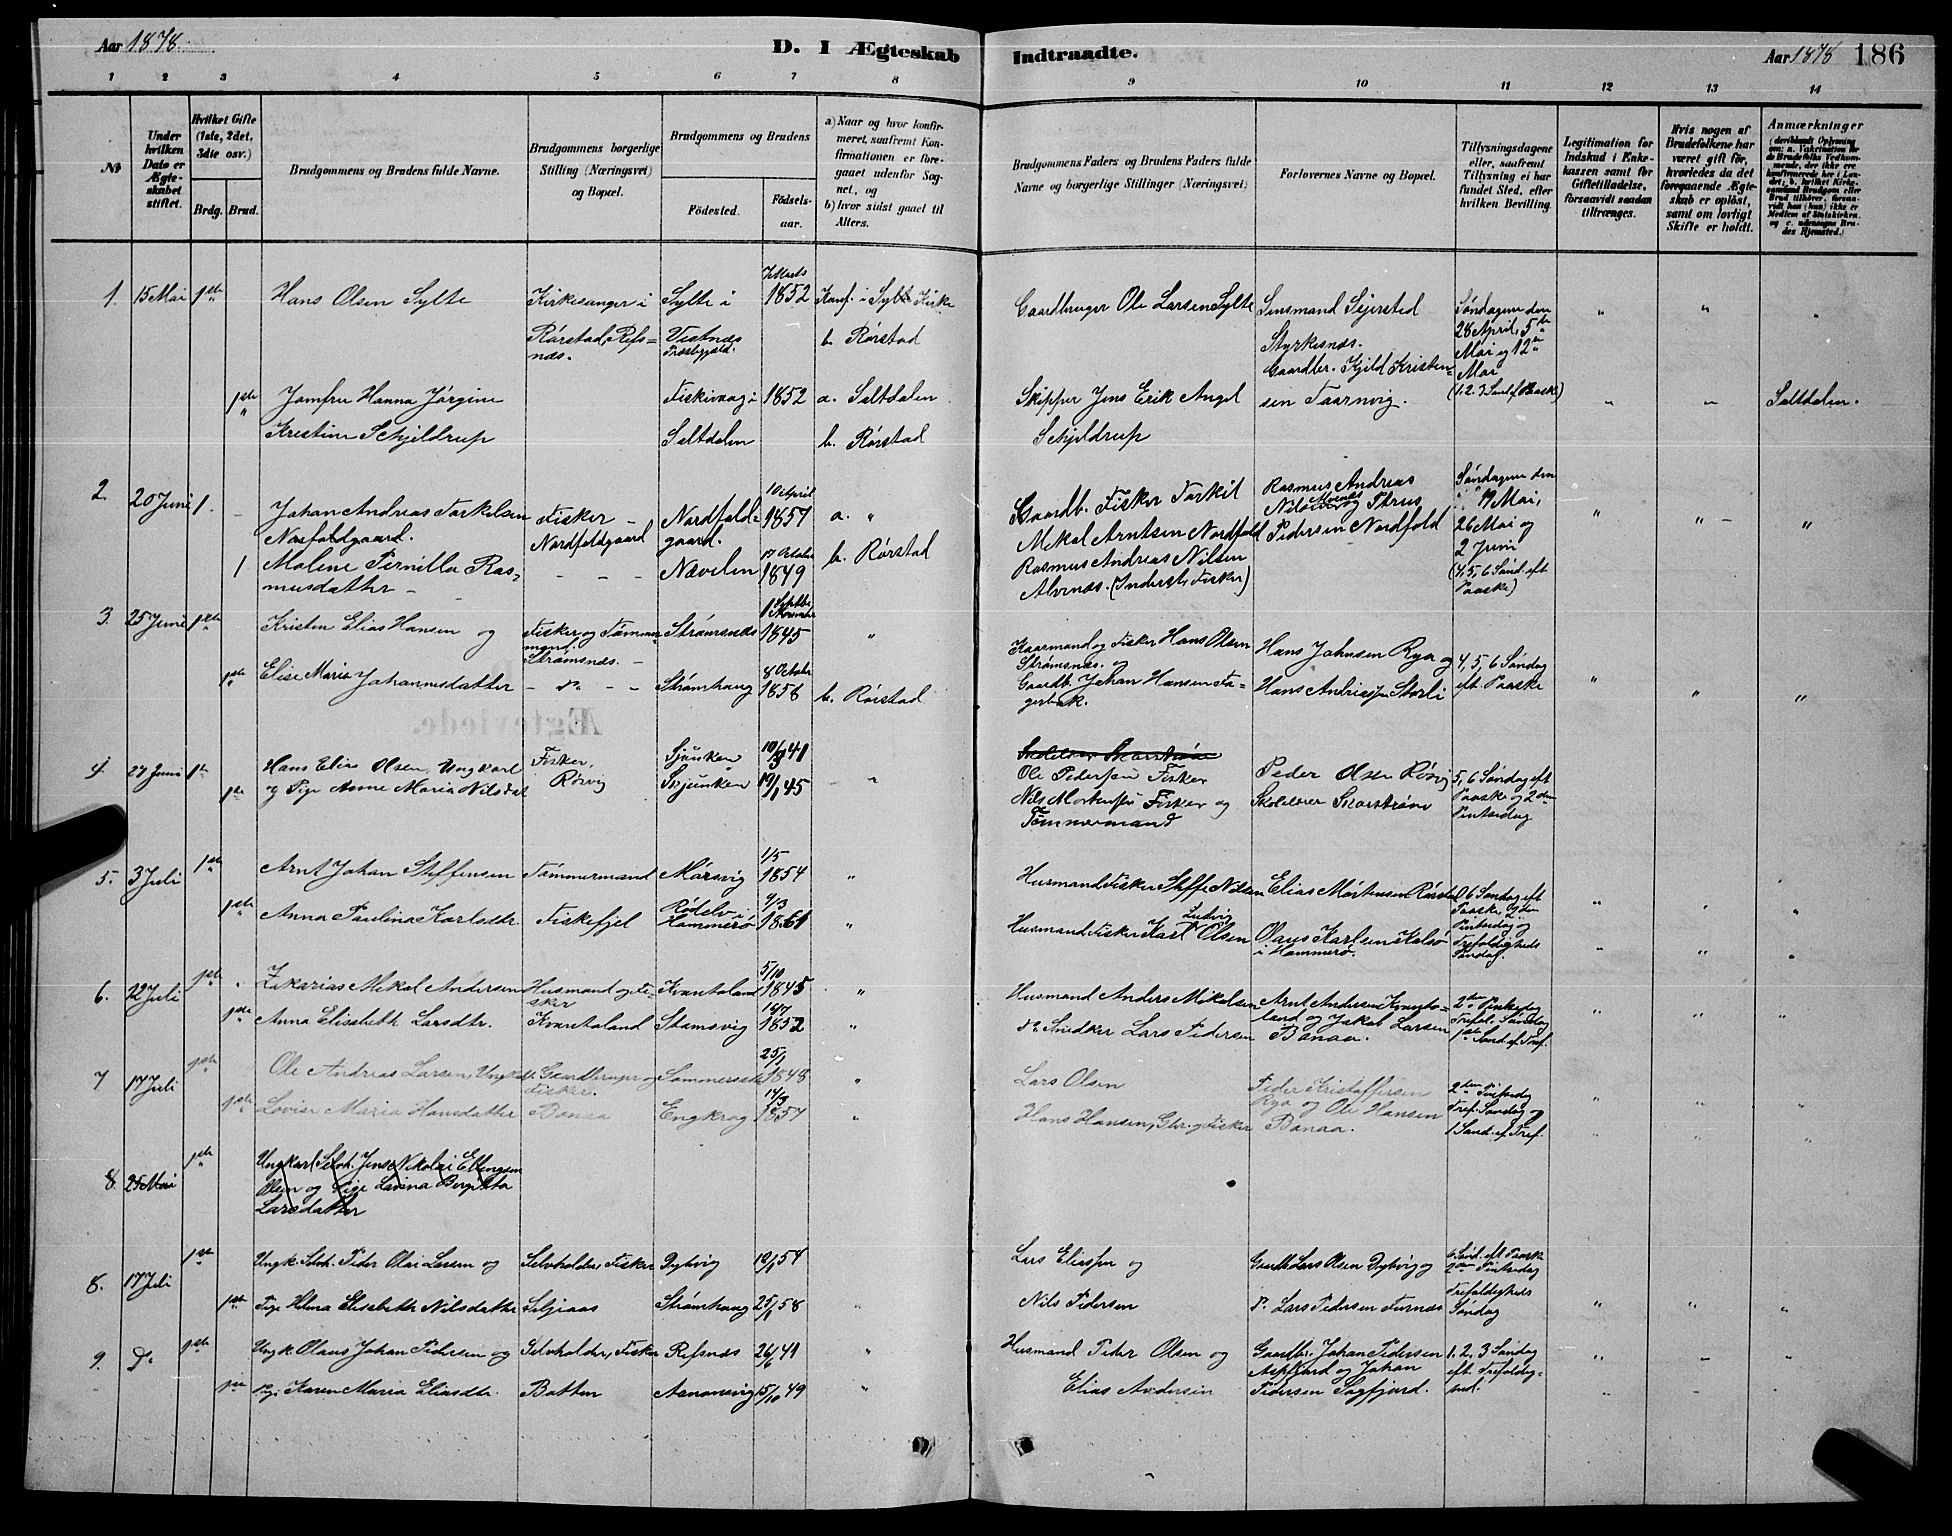 Aar 1878.
D. I Ægteskab
Indtraadte.
Aar 1878
186
1 2 3 4 5 6 7 8
9 10 11 12 13 14
№
Under hvilken Dato er Ægteskabet stiftet.
Hvilket Gifte (1ste, 2det, 3die osv.)
Brdg. Brud.
Brudgommens og Brudens fulde Navne.
Brudgommens borgerlige Stilling (Næringsvei) og Bopæl.
Brudgommens og Brudens
Fødested.
Fødselsaar.
a) Naar og hvor konfirmeret, saafremt Konfirmationen er foregaaet udenfor Sognet, og
b) hvor sidst gaaet til Alters.
Brudgommens Faders og Brudens Faders fulde Navne og borgerlige Stillinger (Næringsvei)
Forlovernes Navne og Bopæl.
Tillysningsdagene eller, saafremt Tillysning ei har fundet Sted, efter hvilken Bevilling.
Legitimation for Indskud i Enkekassen samt for Giftetilladelse, forsaavidt saadan tiltrænges.
Hvis nogen af Brudefolkene har været gift før, hvorledes da det foregaaende Ægteskab er opløst, samt om lovligt Skifte er holdt.
Anmærkninger
1. 15 Mai 1ste Hans Olsen Sylte
Kirkesanger i Rørstad, Refsnæs.
Sylte i Vestnæs Præstegjæld.
7 Marts 1852
Konf. i Sylt Kirke
b. Rørstad
Gaardbruger Ole Larsen Sylte
Lensmand Sejersted Styrkesnæs.
Gaardbr. Kjeld Kristensen Taarnvig.
Søndagene den 28 April, 5te Mai og 12te Mai
(1. 2. 3 Sønd. f. Paaske)
1ste Jomfru Hanna Jørgine Kristine Schjeldrup
Fiskevaag i Saltdalen
1852
a. Saltdalen
b. Rørstad
Skipper Jens Erik Angel Schjeldrup
Saltdalen.
2. 20 Juni 1. Johan Andreas Torkelsen Nordfoldgaard.
Fisker – Nordfoldgaard
Nordfoldgaard.
10 April 1857
a. "
Gaardb. Fisker Torkil Mekal Arntsen Nordfold
Rasmus Andreas Nilsen Alvenæs og Petrus Pedersen Nordfold
Søndagene den 19 Mai, 26 Mai og 2 Juni
(4, 5, 6 Sønd. eft. Paaske)
1 Malene Pernilla Rasmusdatter –
Nævelen
17 October 1849
b. Rørstad
Rasmus Andreas Nilsen Alvenæs. (Inderst, Fisker)
3. 25 Juni 1ste Kristen Elias Hansen og
Fisker og Tømmermand. Strømsnæs. –
Strømsnæs
1845
"
Kaarmand og Fisker Hans Olsen Strømsnæs. og
Hans Johnsen Rya og
4, 5, 6 Søndag eft. Paaske
1ste Elise Maria Johannesdatter
– do – –
Strømhaug
8 October 1858
b. Rørstad
Gaardb. Johan Hansen Fagerbak.
Hans Andreassen Storli
4. 27 Juni 1ste Hans Elias Olsen, Ungkarl
Fisker, Rørvig
Sjunken
10/3 41
Ole Pedersen Fisker
Peder Olsen Rørvig
5, 6 Søndag eft Paaske og 2den Pintsedag
1ste og Pige Anne Maria Nilsdat
Sjunken
19/1 45
Nils Mortensen Fisker og Tømmermand
Skolelærer Skarstrøm
5. 3 Juli 1ste Arnt Johan Steffensen
Tømmermand
Mørsvig
1/5 1854
"
Husmand Fisker Steffe Nilsen
Elias Mørtensen Rørstad
6 Søndag eft Paaske, 2den Pintsedag og Trefoldigheds Søndag.
1ste Anna Paulina Karlsdtr.
Fiskefjel
Rødelv i Hammerø
9/3 1861
"
Husmand Fisker Karl Ludvig Olsen
Olaus Karlsen Kalsø i Hammerø.
6. 22 Juli 1ste Zakarias Mekal Andersen
Husmand og Fisker Kvantoland
Kvantoland
5/10 1845
"
Husmand Anders Mikalsen
Arnt Andersen Kvantoland og Jakob Larsen Bonaa.
2den Pintsedag Trefol. Søndag 1ste Sønd. ef. Tref.
1ste Anna Elisabeth Larsdtr.
Stamsvig
16/7 1852
"
do Snedker Lars Pedersen
7 17 Juli 1ste Ole Andreas Larsen, Ungkarl
Gaardbruger og Fisker. Bonaa
Sommerset
25/1 1848
"
Lars Olsen
Peder Kristoffersen Rya og Ole Hansen Bonaa.
2den Pintsedag Tref. Søndag og 1 Sønd. ef Tref.
1ste Lovise Maria Hansdatter
Engkrog
14/3 1857
"
Hans Hansen, Gbr. og Fisker
8. 25 Mai 1ste Ungkarl Selvh. Jens Nikolai Ellingsen Olsen og Pige Lavina Bergitta Larsdatter
8. 17 Juli 1ste Ungk. Selvh. Peder Olai Larsen og
Selvholder, Fisker
Dybvig
19/1 54
Lars Eliassen og
Gaardb. Lars Olsen Dybvig og
6 Sønd. eft Paaske 2den Pintsedag Trefoldigheds Søndag
1ste Pige Helena Elisabeth Nilsdatter
Seljeaas
Strømhaug
25/1 58
Nils Pedersen
do. Lars Pedersen Furnæs
9. do 1ste Ungk. Olaus Johan Pedersen og
Selvholder, Fisker
Refsnæs
26/6 49
"
Husmand Peder Olsen og
Gaardbr. Johan Pedersen Aspfjord og Johan Pedersen Sagfjord.
1. 2, 3 Søndag eft. Trefoldighed.
1ste Pige Karen Maria Eliasdtr.
Botten
Aanonsvig
15/10 49
"
Elias Andersen